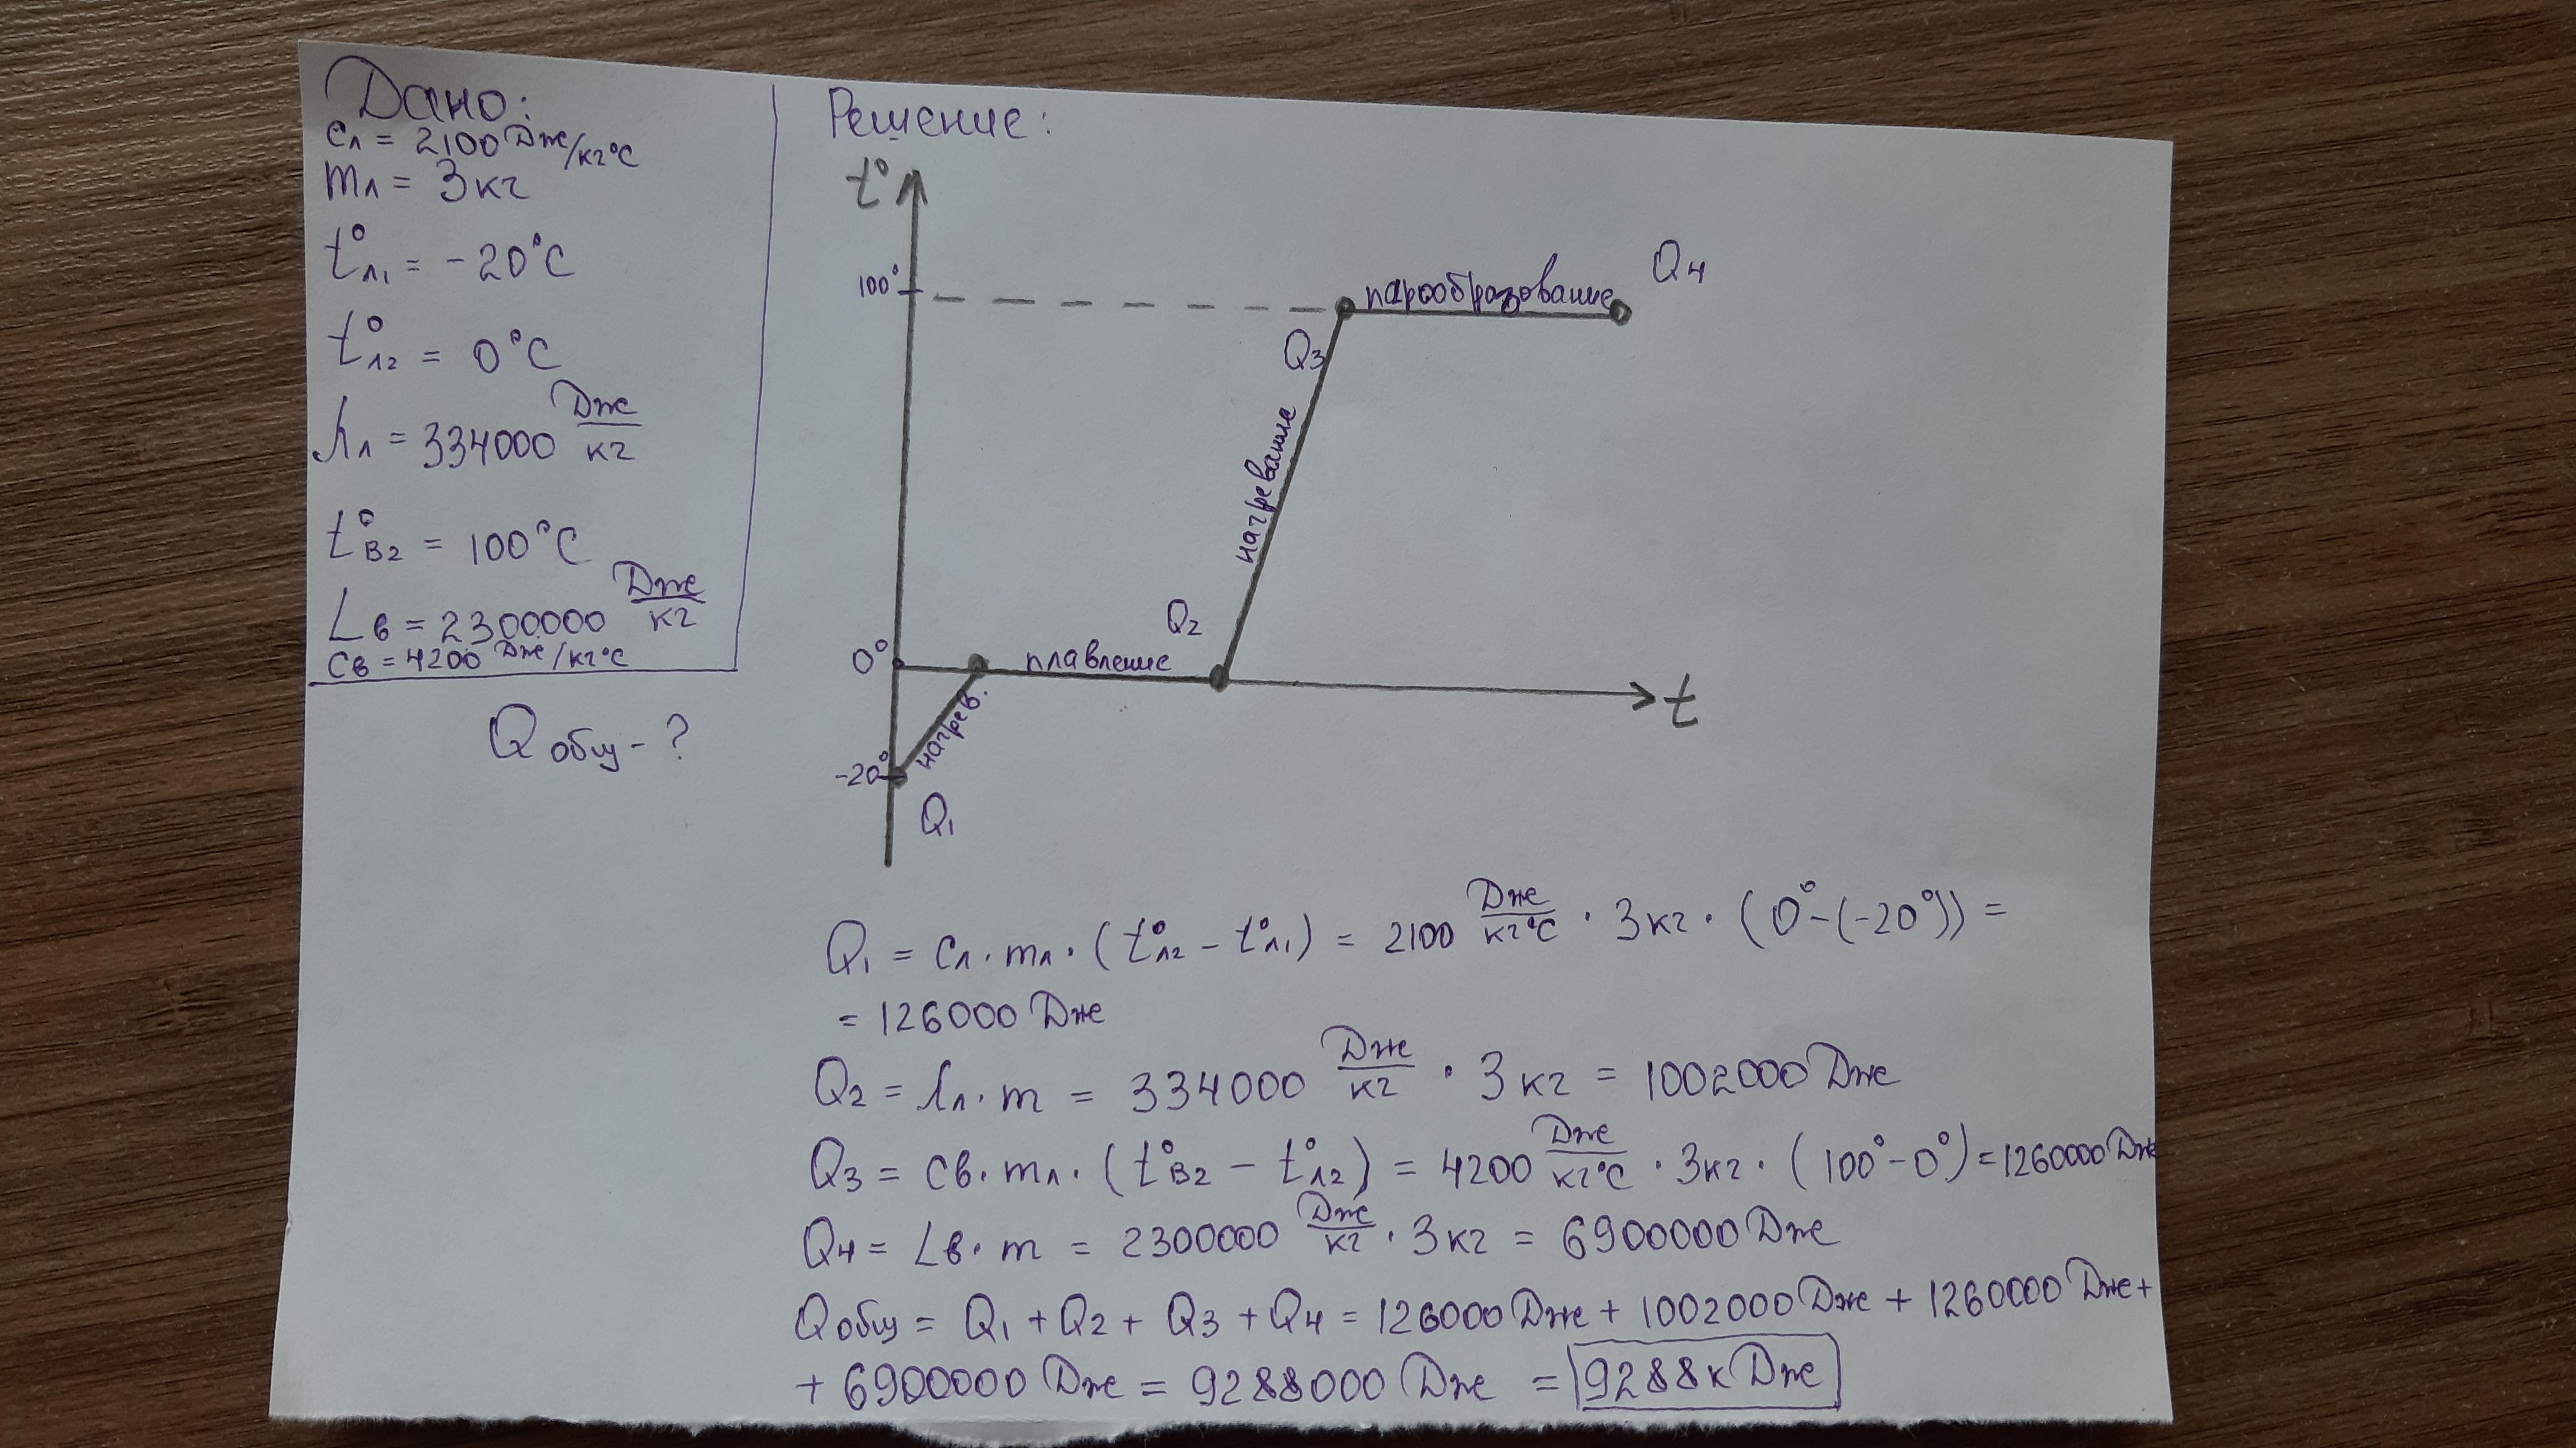 Дано:
cл = 2100 Дж/кг°C
mл = 3 кг
t°л1 = -20°C
t°л2 = 0°C
λл = 334000 Дж/кг
t°в2 = 100°C
Lв = 2300000 Дж/кг
cв = 4200 Дж/кг°C
Qобщ - ?
Решение:
t°
100°
парообразование
Q4
Q3
нагревание
Q2
0°
плавление
t
нагрев.
-20°
Q1
Q1 = cл · mл · (t°л2 - t°л1) = 2100 Дж/кг°C · 3 кг · (0° - (-20°)) =
= 126000 Дж
Q2 = λл · m = 334000 Дж/кг · 3 кг = 1002000 Дж
Q3 = cв · mл · (t°в2 - t°л2) = 4200 Дж/кг°C · 3 кг · (100° - 0°) = 1260000 Дж
Q4 = Lв · m = 2300000 Дж/кг · 3 кг = 6900000 Дж
Qобщ = Q1 + Q2 + Q3 + Q4 = 126000 Дж + 1002000 Дж + 1260000 Дж +
+ 6900000 Дж = 9288000 Дж = 9288 кДж